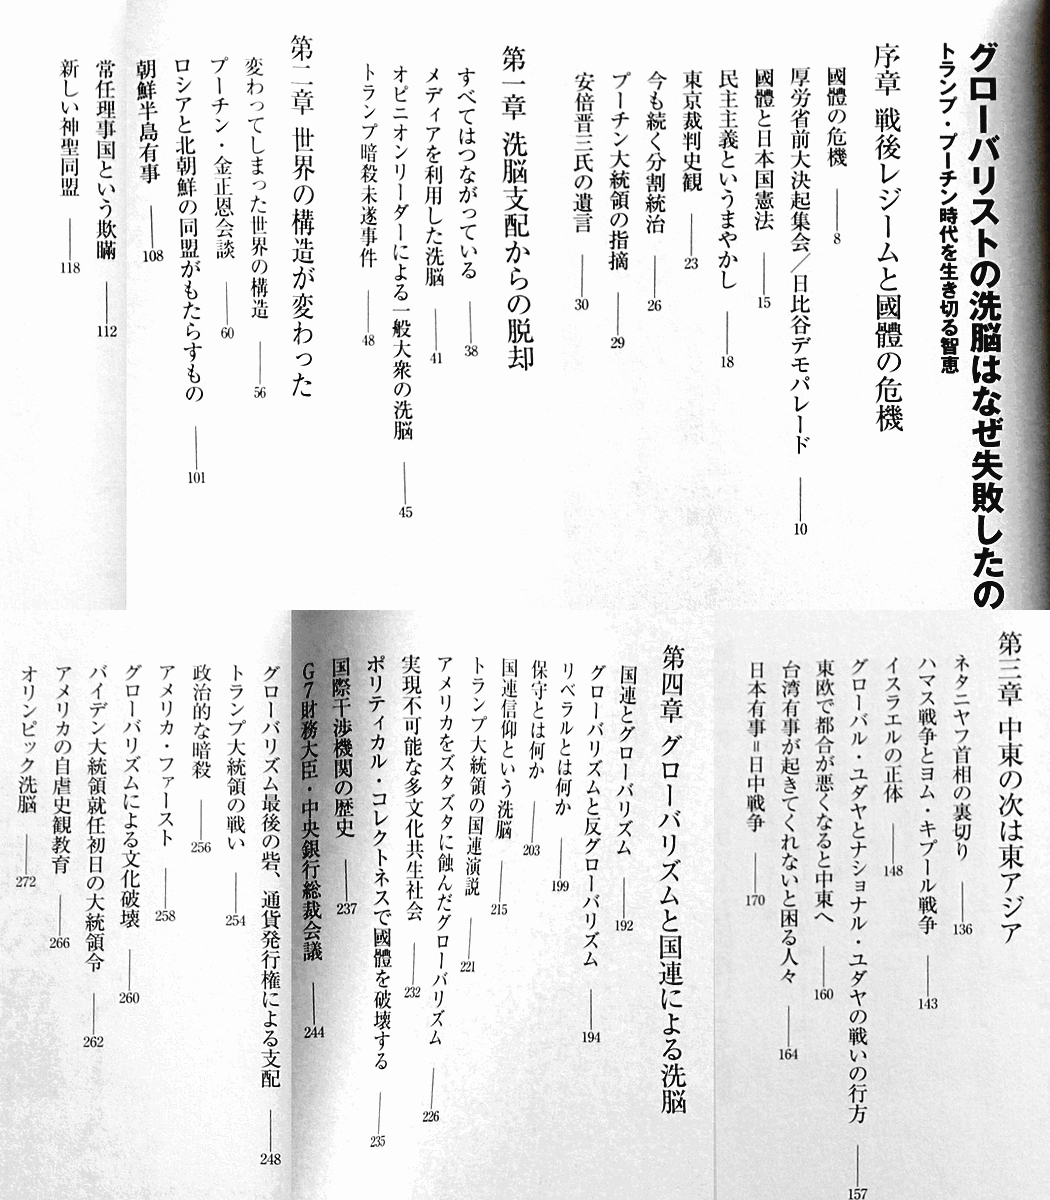 グローバリストの洗脳はなぜ失敗したの
トランプ・プーチン時代を生き切る智恵
序章 戦後レジームと國體の危機
國體の危機 8
厚労省前大決起集会／日比谷デモパレード 10
國體と日本国憲法 15
民主主義というまやかし 18
東京裁判史観 23
今も続く分割統治 26
プーチン大統領の指摘 29
安倍晋三氏の遺言 30
第一章 洗脳支配からの脱却
すべてはつながっている 38
メディアを利用した洗脳 41
オピニオンリーダーによる一般大衆の洗脳 45
トランプ暗殺未遂事件 48
第二章 世界の構造が変わった
変わってしまった世界の構造 56
プーチン・金正恩会談 60
ロシアと北朝鮮の同盟がもたらすもの 101
朝鮮半島有事 108
常任理事国という欺瞞 112
新しい神聖同盟 118
第三章 中東の次は東アジア
ネタニヤフ首相の裏切り 136
ハマス戦争とヨム・キプール戦争 143
イスラエルの正体 148
グローバル・ユダヤとナショナル・ユダヤの戦いの行方 157
東欧で都合が悪くなると中東へ 160
台湾有事が起きてくれないと困る人々 164
日本有事＝日中戦争 170
第四章 グローバリズムと国連による洗脳
国連とグローバリズム 192
グローバリズムと反グローバリズム 194
リベラルとは何か 199
保守とは何か 203
国連信仰という洗脳 215
トランプ大統領の国連演説 221
アメリカをズタズタに蝕んだグローバリズム 226
実現不可能な多文化共生社会 232
ポリティカル・コレクトネスで國體を破壊する 235
国際干渉機関の歴史 237
G7財務大臣・中央銀行総裁会議 244
グローバリズム最後の砦、通貨発行権による支配 248
トランプ大統領の戦い 254
政治的な暗殺 256
アメリカ・ファースト 258
グローバリズムによる文化破壊 260
バイデン大統領就任初日の大統領令 262
アメリカの自虐史観教育 266
オリンピック洗脳 272